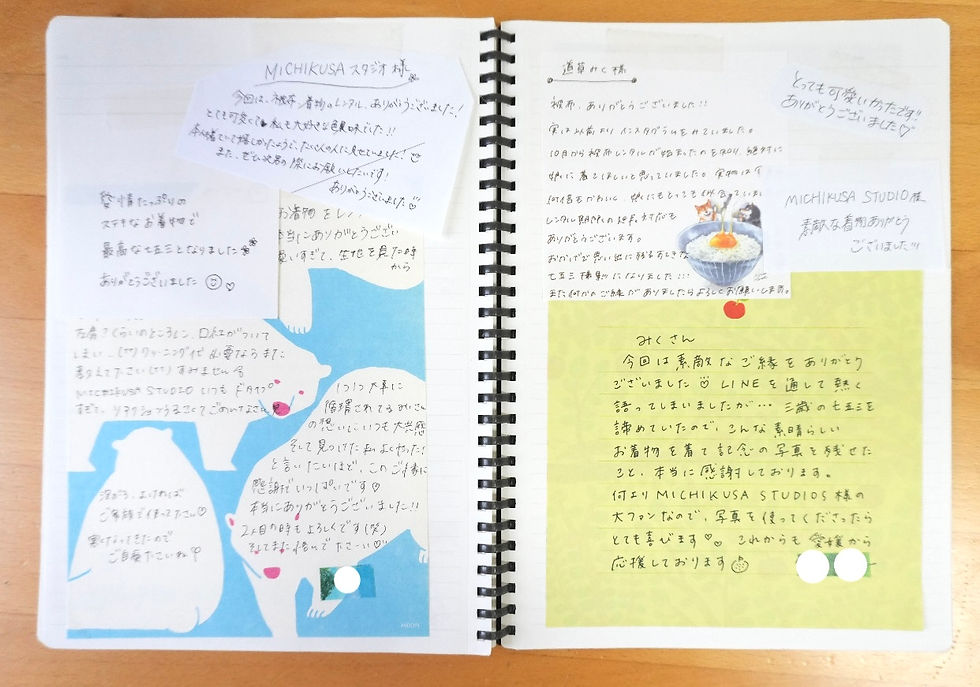 MICHIKUSAスタジオ様
今回は、被布、着物のレンタル、ありがとうございました!
とても可愛くて 私も大好きな色味でした!!
本人も着ていて嬉しかったようで、たくさんの人に見せていました!
また、ぜひ次女の際にお願いしたいです!
ありがとうございました♡
愛情たっぷりの
ステキなお着物で
最高な七五三となりました
ありがとうございました ♡
お着物をレン
本当にありがとうござい
生地を見た時
から
左肩さくらいのところに、口紅がついて
しまい クリーニング代 必要ならまた
教えて下さい すみません
MICHIKUSA STUDIO いつも ドタイプ
すぎて、リアクションうるさくてごめんなさい
1つ1つ大事に
の想いにいつも大共感
そして見つけた私よくやった!
と言いたいほど、このご縁に
感謝でいっぱいです♡
本当にありがとうございました!!
2人目の時もよろしくです(笑)
そしてまた悩んで下さーい♡
よければ
ご家族で使って下さい♡
寒くなってきたので
ご自愛下さいね
道草みく様
被布、ありがとうございました!!
実は以前よりインスタグラムをみていました。
10月から被布レンタルが始まったのを知り、絶対に
娘に着てほしいと思っていました。実物は
何倍もかわいく、娘にもとても似合ってい
レンタル期間の延長までも
ありがとうございます。
おかげで思い出に残るすてきな
七五三撮影になりました!!!
また何かのご縁がありましたらよろしくお願いします。
とっても可愛いかったです!!
ありがとうございました♡
MICHIKUSA STUDIO様
素敵な着物ありがとう
ございました!!
みくさん
今回は素敵なご縁をありがとう
ございました♡ LINEを通して熱く
語ってしまいましたが… 三歳の七五三を
諦めていたので、こんな素晴らしい
お着物を着て記念の写真を残せた
こと、本当に感謝しております。
何よりMICHIKUSA STUDIOS様の
大ファンなので、写真を使ってくださったら
とても喜びます♡♡ これからも愛媛から
応援しております